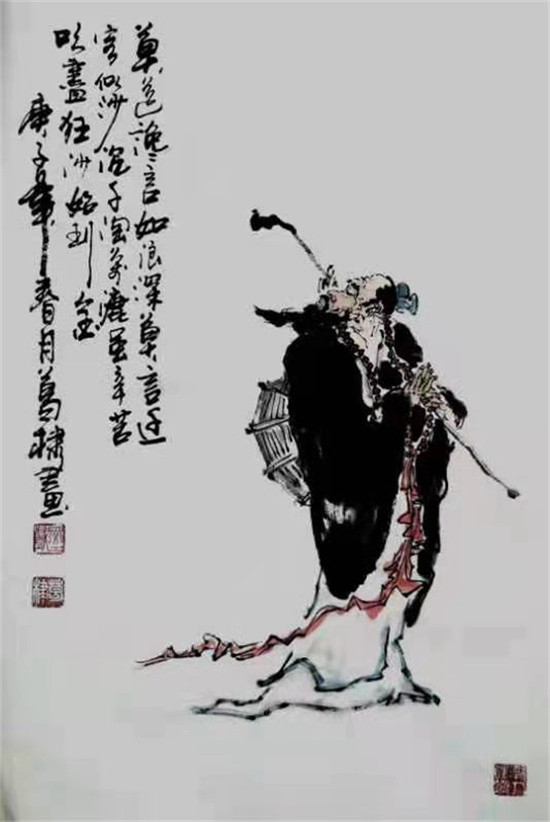 莫道谗言如浪深莫言迁
客似沙沉千淘万漉虽辛苦
吹盡狂沙始到金
庚子年春月葛棣畫